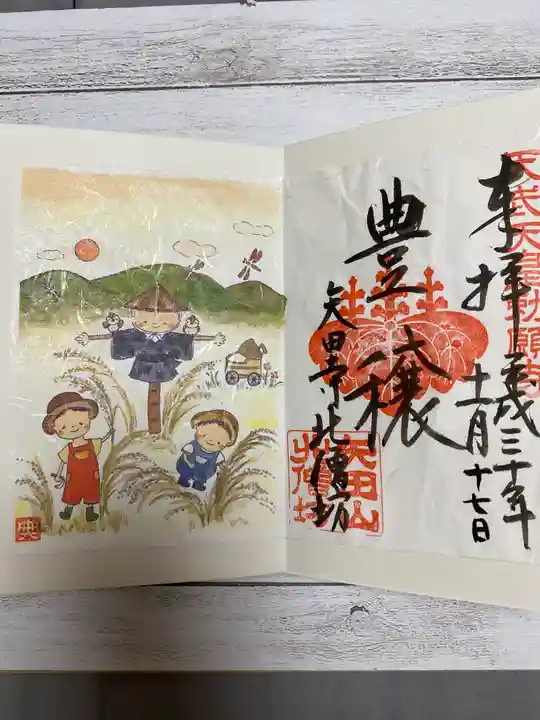 奉拝 平成三十年
十一月十七日
天武天皇勅願寺
豊穣
矢田寺北僧坊
矢田山
北僧坊
典